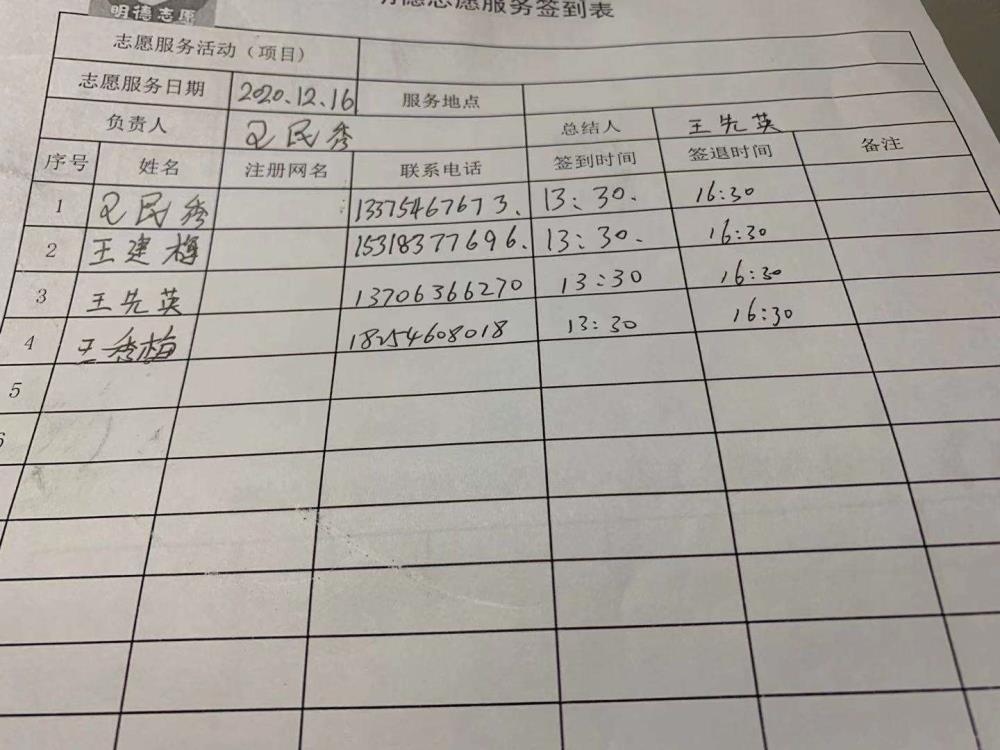 明德志愿
明德志愿服务签到表
志愿服务活动（项目）
志愿服务日期 2020.12.16 服务地点
负责人 王民秀 总结人 王先英
序号 姓名 注册网名 联系电话 签到时间 签退时间 备注
1 王民秀 13375467673. 13:30. 16:30
2 王建梅 15318377696. 13:30. 16:30
3 王先英 13706366270 13:30 16:30
4 王秀梅 18254608018 13:30 16:30
5
6